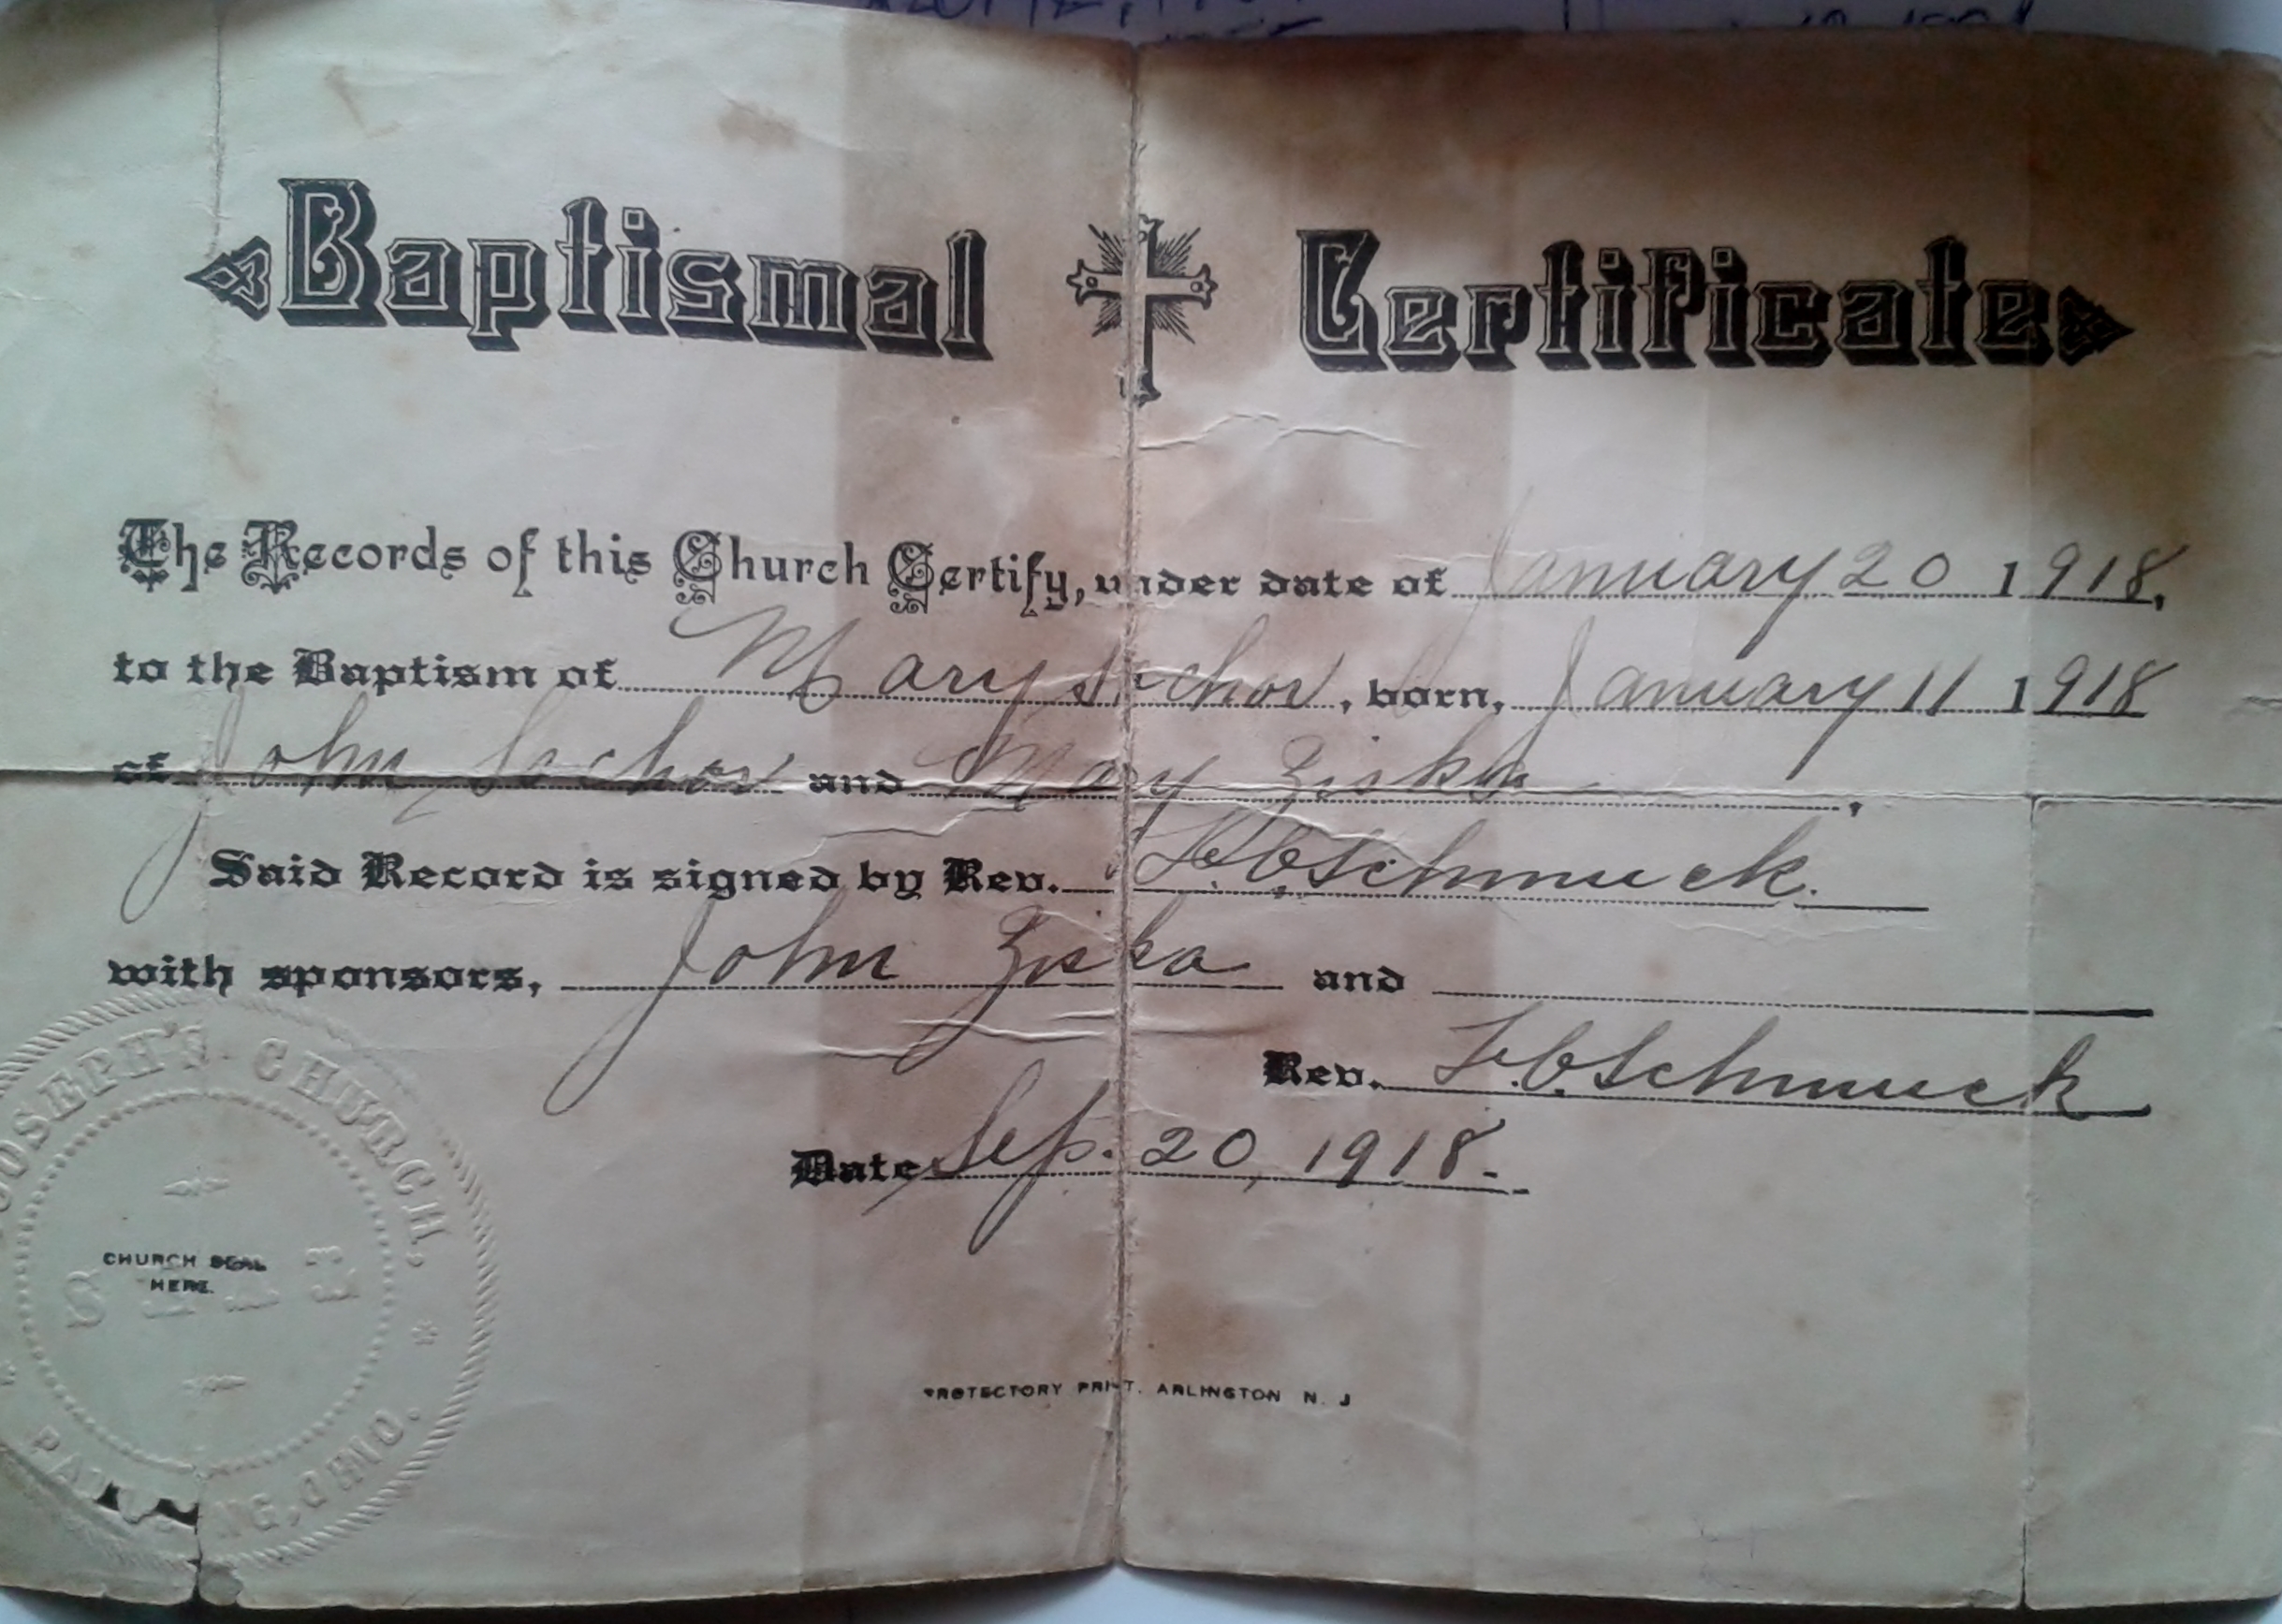 Baptismal Certificate
The Records of this Church Certify, under date of January 20 1918,
to the Baptism of Mary Sochor, born, January 11 1918
of John Sochor and Mary Ziska.
Said Record is signed by Rev. Schmuck.
with sponsors, John Ziska and
Rev. Schmuck
Date Sep. 20, 1918.
JOSEPH'S CHURCH,
CHURCH SEAL
HERE.
OHIO.
PROTECTORY PRINT. ARLINGTON N. J